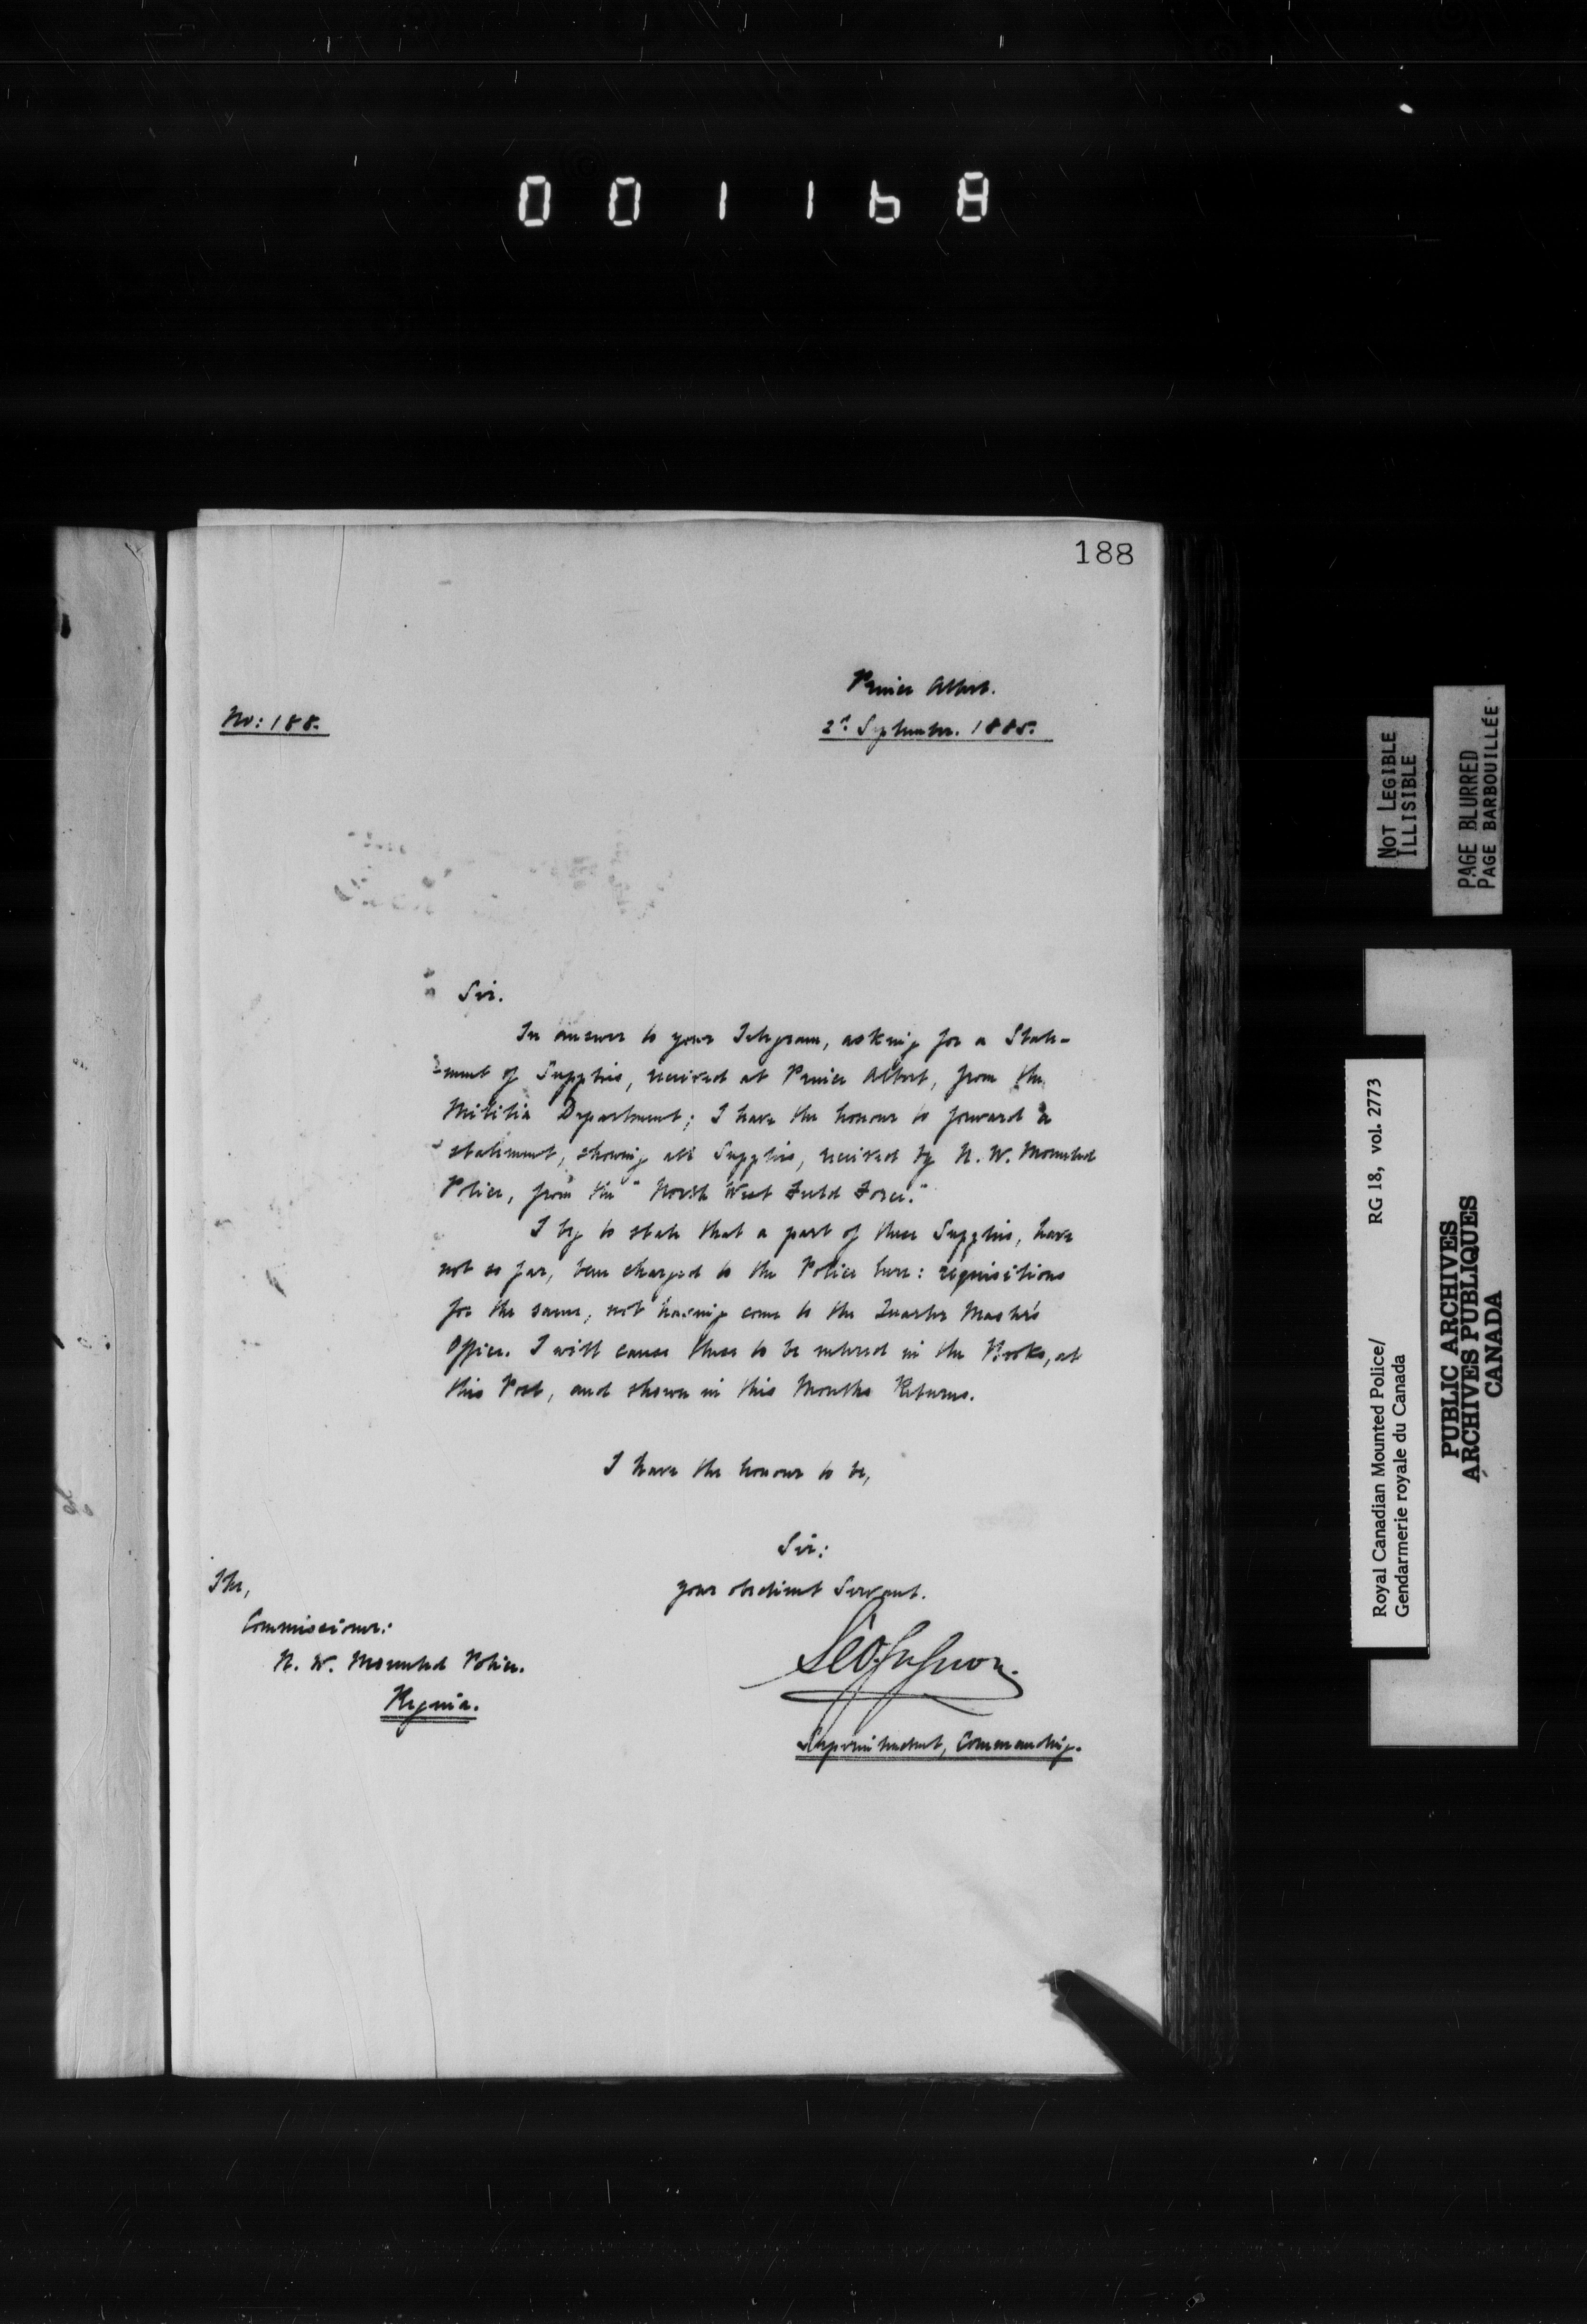 001168
188
Prince Albert.
No: 188.
2d. September. 1885.
Sir.
In answer to your Telegram, asking for a State-
-ment of Supplies, received at Prince Albert, from the
Militia Department; I have the honour to forward a
statement, showing all Supplies, received by N. W. Mounted
Police, from the "North West Field Force."
I beg to state that a part of these Supplies, have
not so far, been charged to the Police here: requisitions
for the same, not having come to the Quarter Master's
Office. I will cause these to be entered in the Books, at
this Post, and shown in this Months Returns.
I have the honour to be,
Sir:
your obedient Servant.
The,
Commissioner:
N. W. Mounted Police.
Regina.
Superintendent, Commanding.
NOT LEGIBLE
ILLISIBLE
PAGE BLURRED
PAGE BARBOUILLÉE
Royal Canadian Mounted Police/ RG 18, vol. 2773
Gendarmerie royale du Canada
PUBLIC ARCHIVES
ARCHIVES PUBLIQUES
CANADA